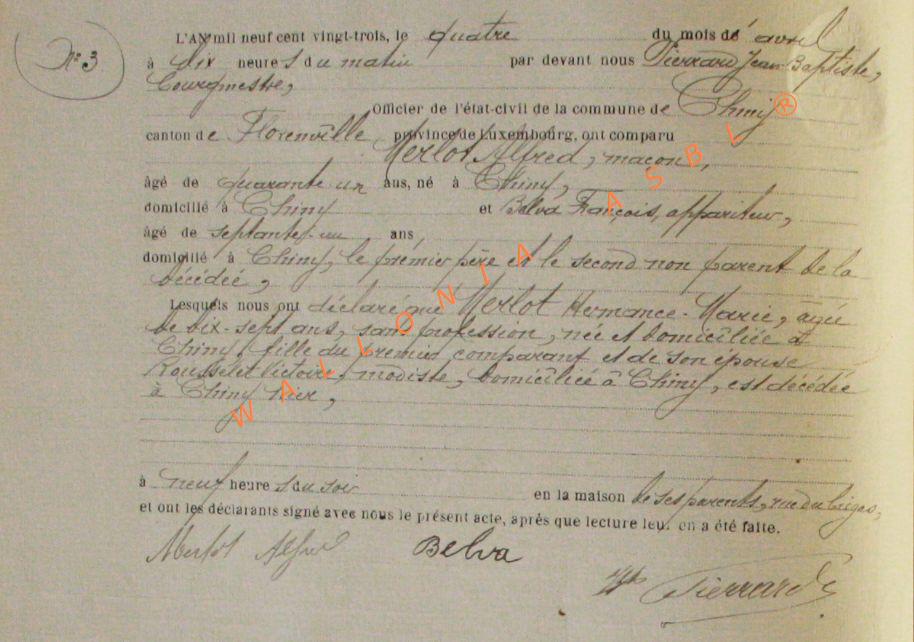 N° 3
L'AN mil neuf cent vingt-trois, le quatre du mois de avril
à dix heure s du matin par devant nous Pierrard Jean-Baptiste,
Bourgmestre,
Officier de l'état-civil de la commune de Chiny
canton de Florenville province de Luxembourg, ont comparu
Merlot Alfred, maçon,
âgé de quarante un ans, né à Chiny,
domicilié à Chiny et Belva François, appariteur,
âgé de septante-un ans,
domicilié à Chiny, le prémier père et le second non parent de la
décédée,
Lesquels nous ont déclaré que Merlot Hermance-Marie, âgée
de dix-sept ans, sans profession, née et domiciliée à
Chiny, fille du premier comparant et de son épouse
Rousselet Victoire, modiste, domiciliée à Chiny, est décédée
à Chiny hier,
à neuf heure s du soir en la maison de ses parents, rue du
et ont les déclarants signé avec nous le présent acte, après que lecture leur en a été faite.
Merlot Alfred Belva
Pierrard
WALLONIA ASBL ®